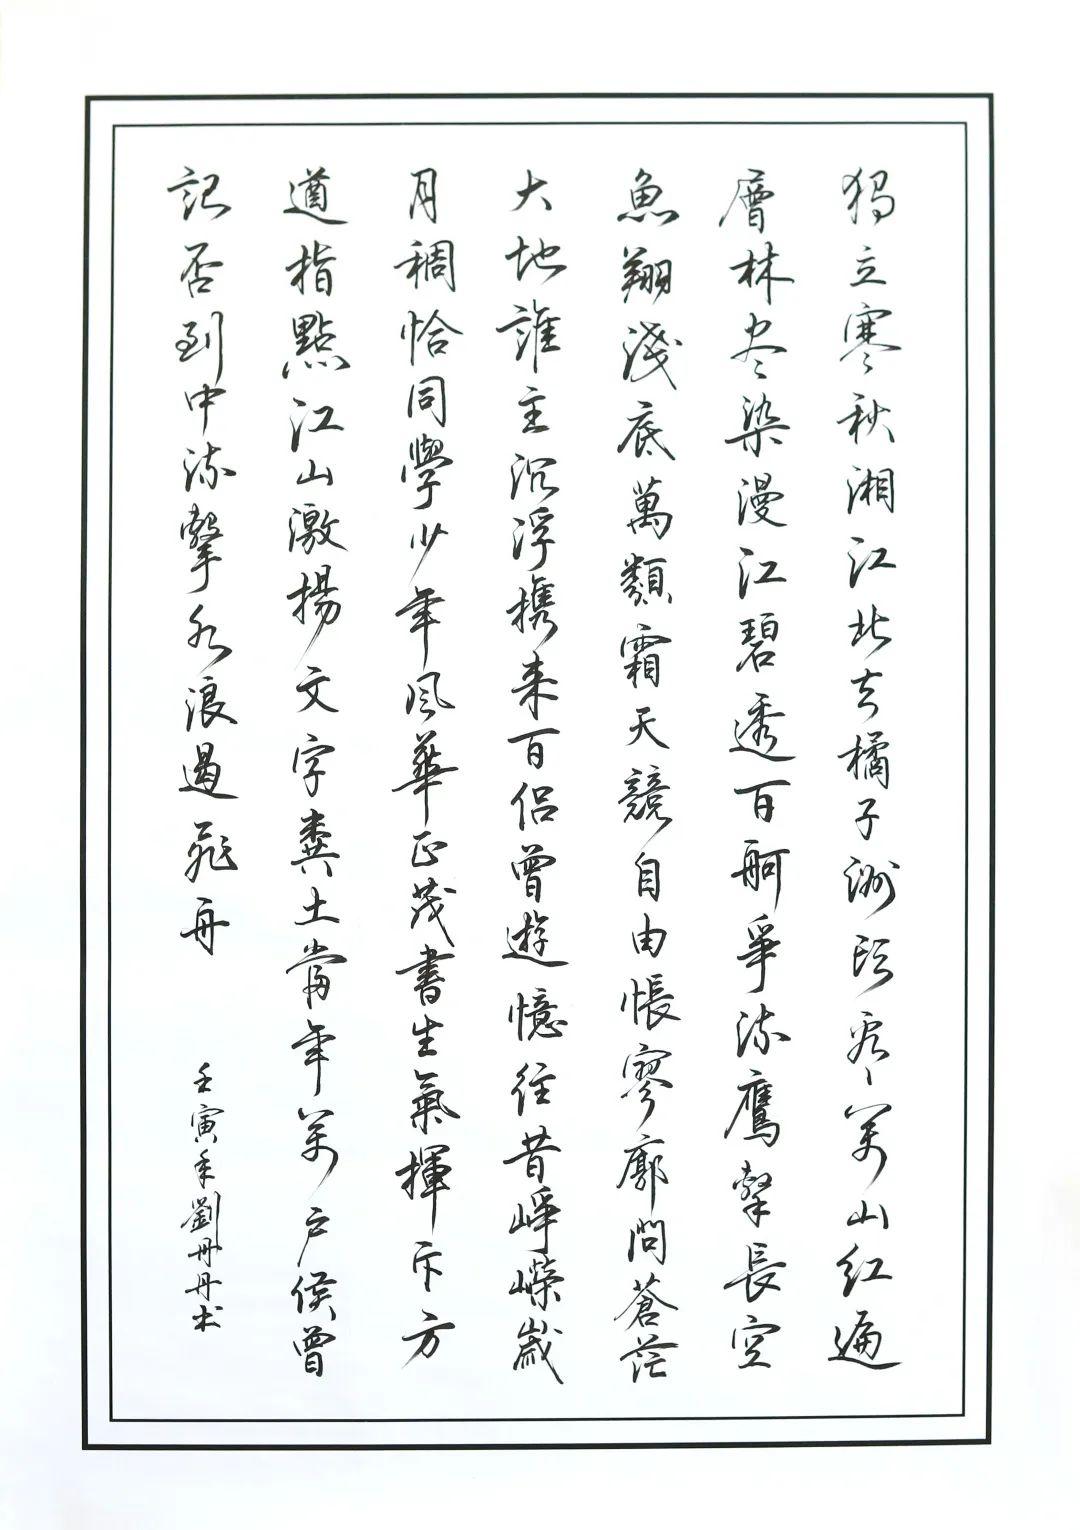 獨立寒秋湘江北去橘子洲頭看萬山紅遍
層林尽染漫江碧透百舸爭流鷹擊長空
魚翔淺底萬類霜天競自由悵寥廓問蒼茫
大地誰主沉浮携来百侣曾遊憶往昔崢嶸歲
月稠恰同學少年風華正茂書生氣揮斥方
遒指點江山激揚文字糞土當年萬户侯曾
記否到中流擊水浪遏飛舟
壬寅年劉丹丹书